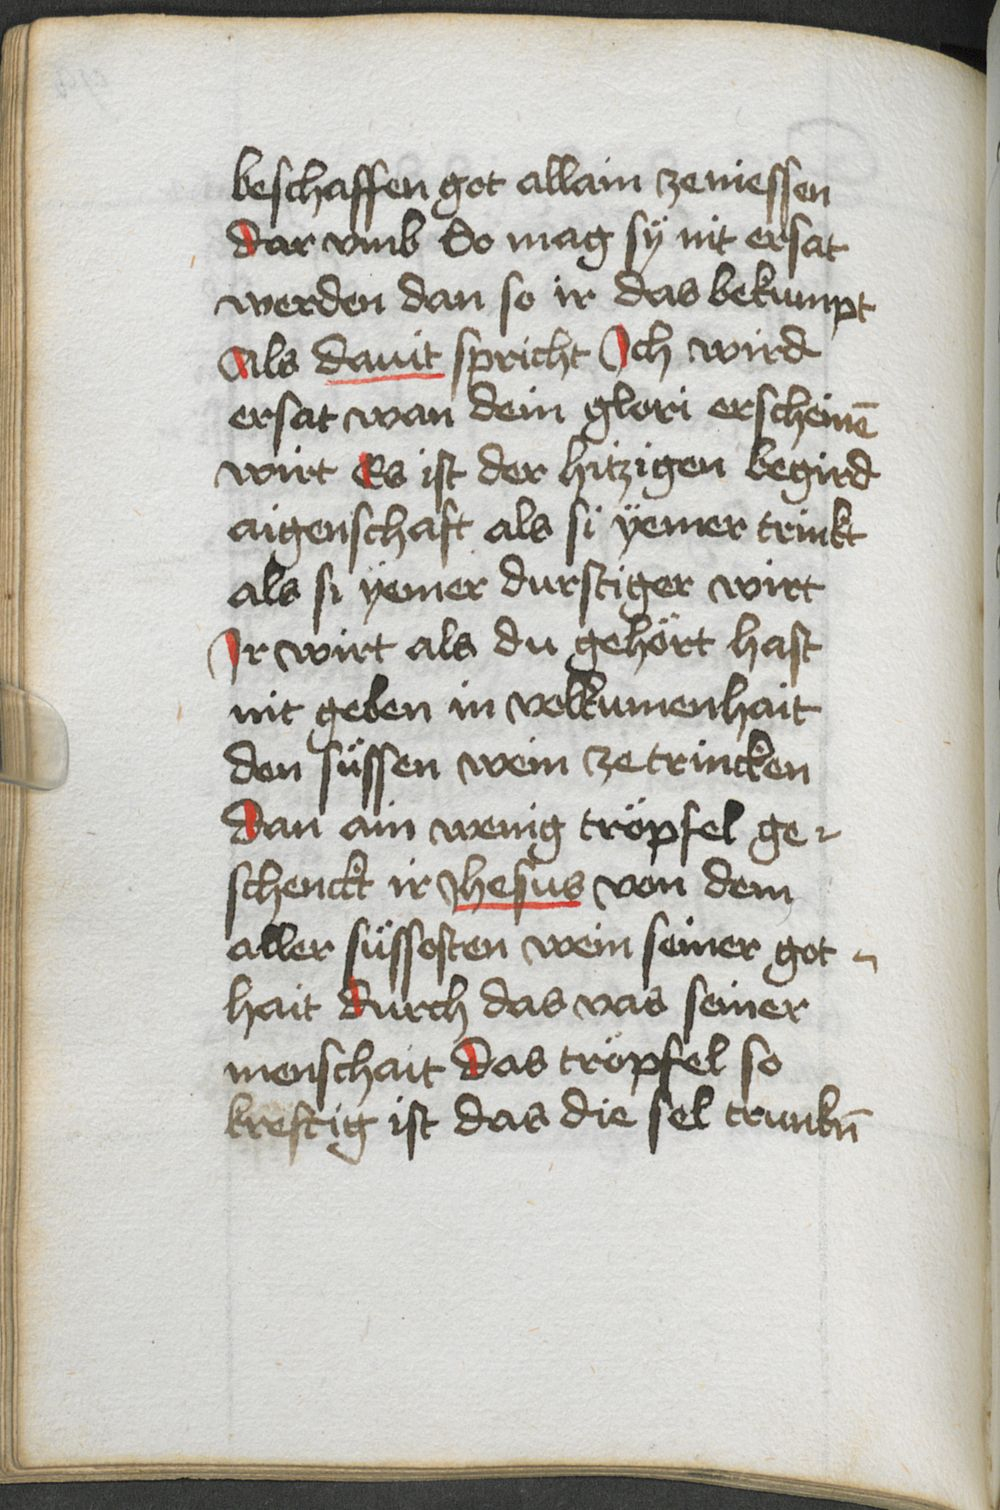 beschaffen got allain ze niessen
dar vmb So mag sÿ nit ersat
werden dan so ir das bekumpt
Als dauit spricht Ich wird
ersat wan dein glori erscheinē
wirt Es ist der hitzigen begird
aigenschaft als si ÿemer trinkt
als si ÿemer durstiger wirt
Ir wirt als du gehört hast
nit geben in volkumenhait
den süssen wein ze trincken
dan ain wenig tröpfel ge-
schenckt ir Jhesus von dem
aller süssosten wein seiner got-
hait durch das vas seiner
menschait das tröpfel so
kreftig ist das die sel trunkn̄